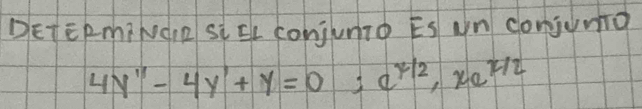 DETERMINAR Si EL conjunto Es un conjunto
4y'' - 4y' + y = 0 ; e^{x/2}, xe^{x/2}